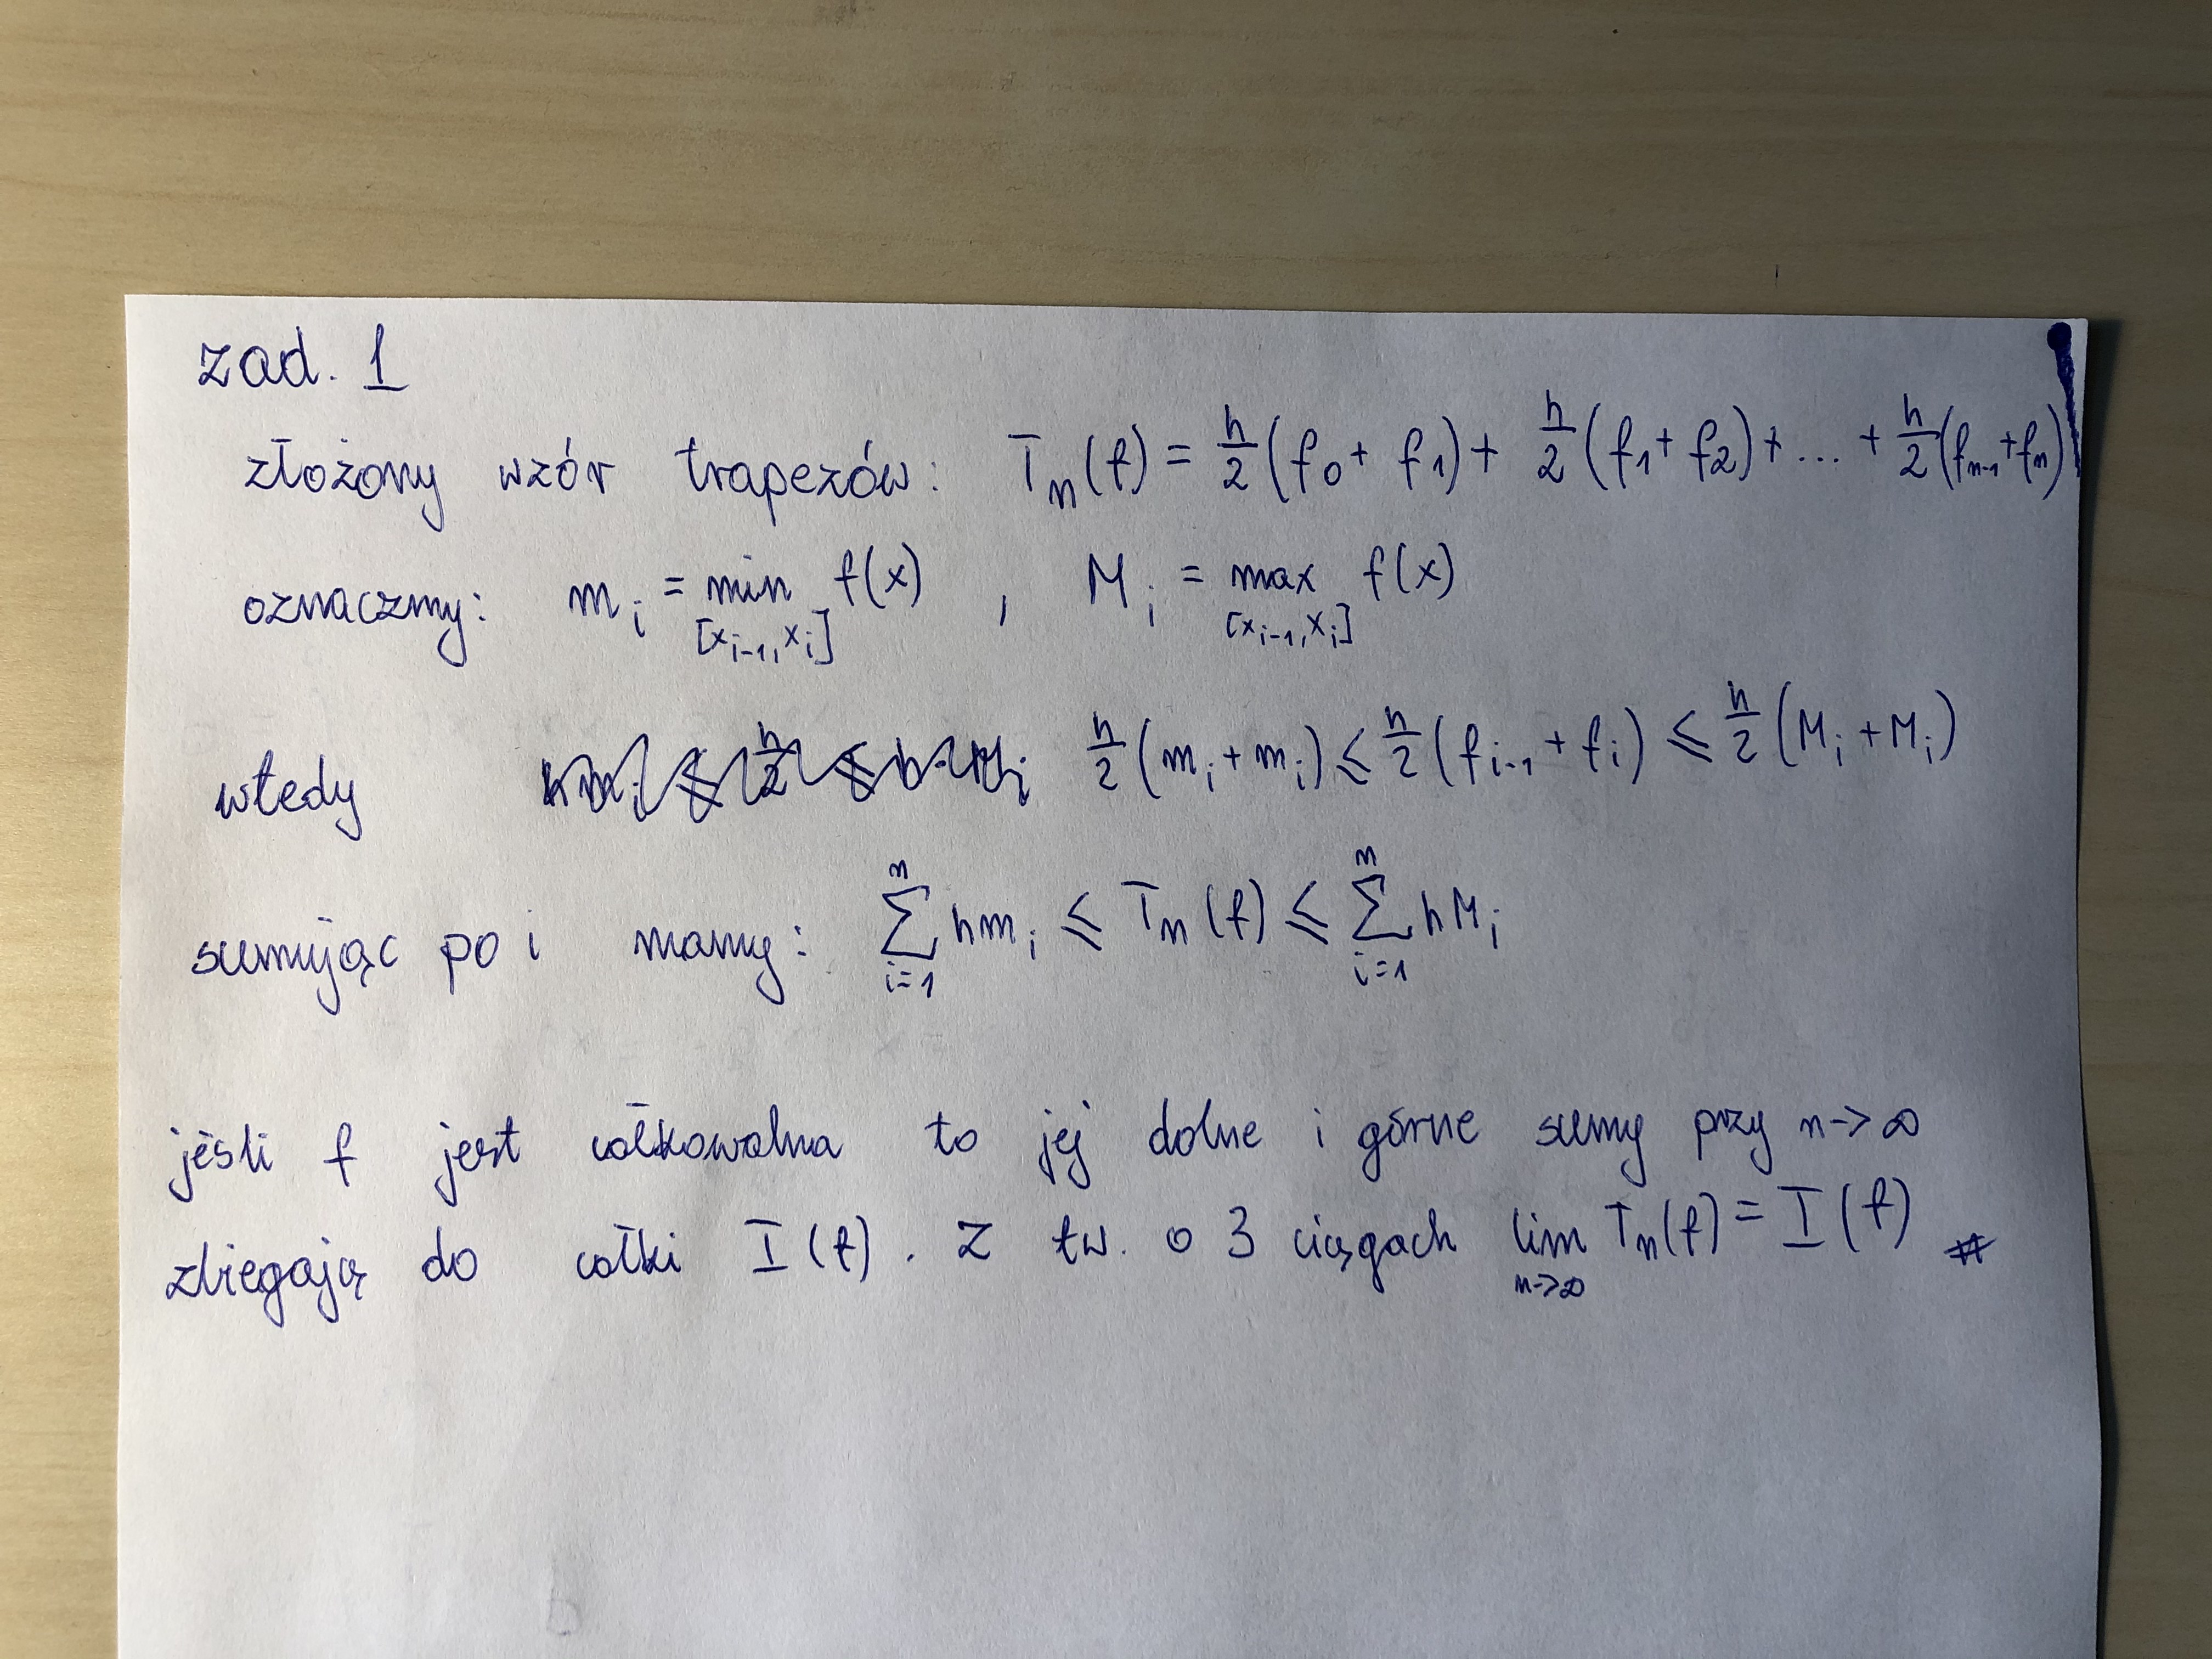 zad. 1
złożony wzór trapezów: T_n(f) = h/2 (f_0 + f_1) + h/2 (f_1 + f_2) + ... + h/2 (f_{n-1} + f_n)
oznaczmy: m_i = min_{[x_{i-1}, x_i]} f(x) , M_i = max_{[x_{i-1}, x_i]} f(x)
wtedy h/2 (m_i + m_i) ≤ h/2 (f_{i-1} + f_i) ≤ h/2 (M_i + M_i)
sumując po i mamy: ∑_{i=1}^{n} h m_i ≤ T_n(f) ≤ ∑_{i=1}^{n} h M_i
jeśli f jest całkowalna to jej dolne i górne sumy przy n→∞
zbiegają do całki I(f). Z tw. o 3 ciągach lim_{n→∞} T_n(f) = I(f) #